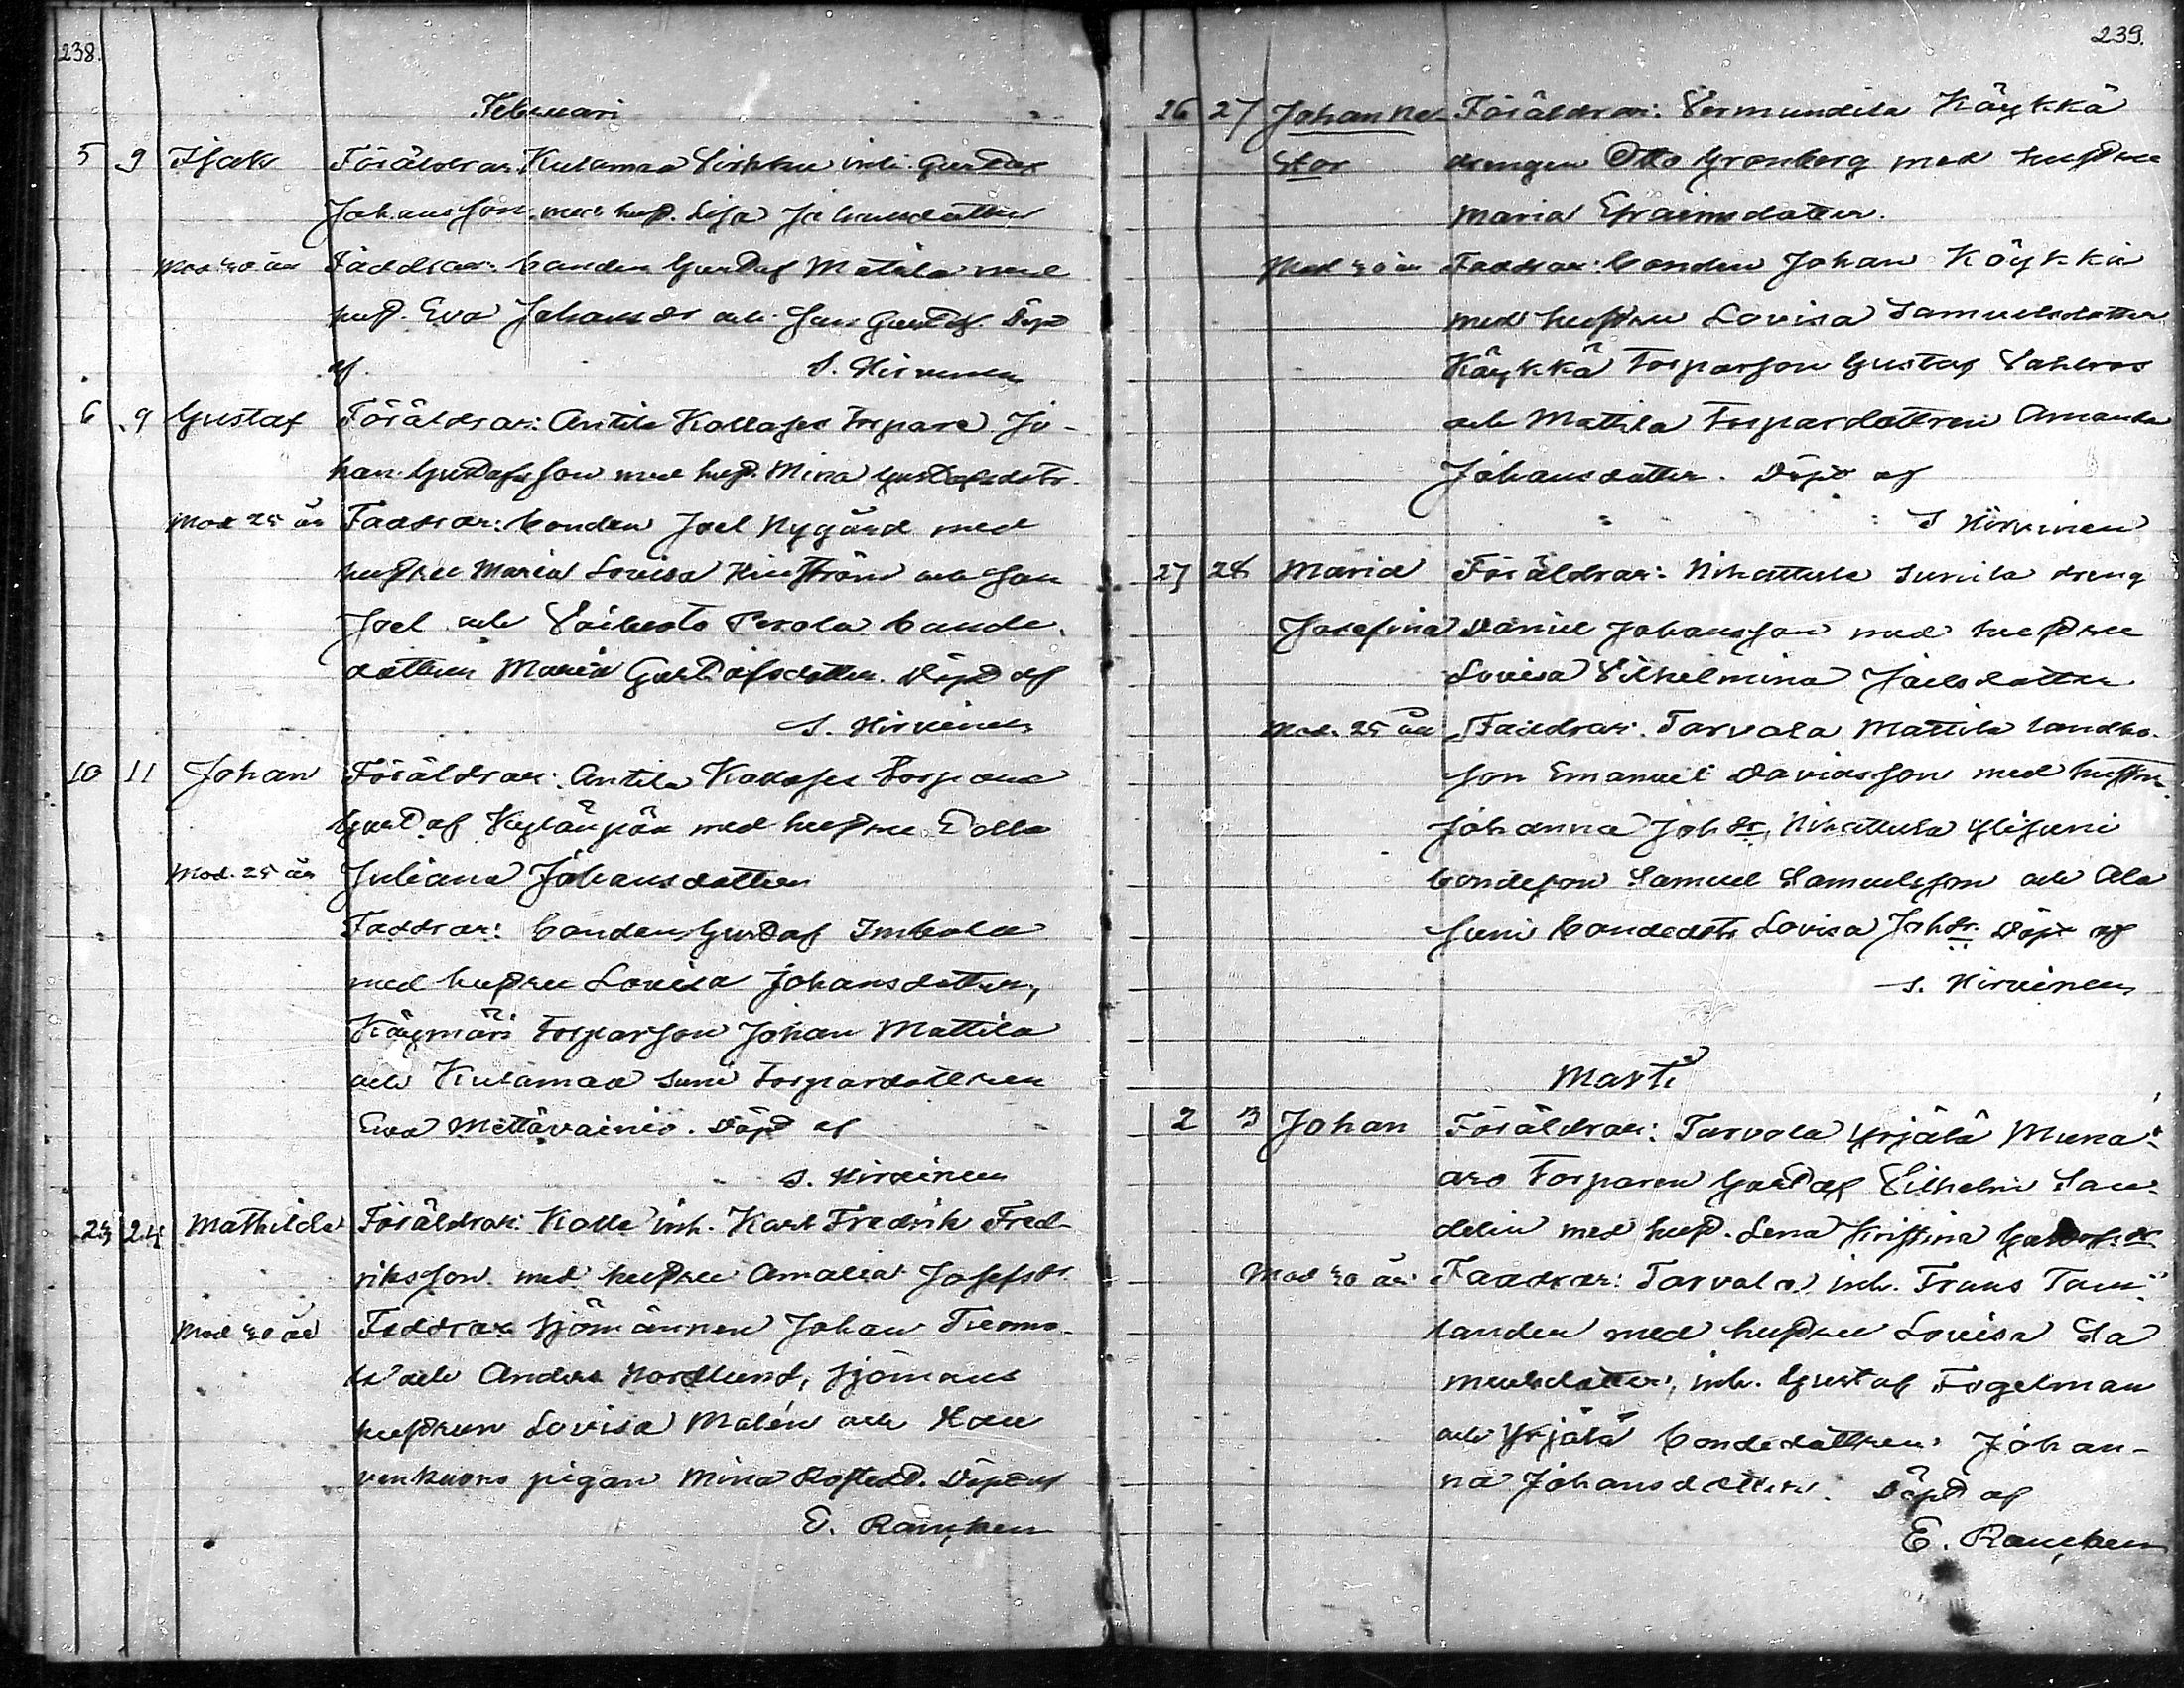 238.
Februari
5 9 Isak Föräldrar: Kulamaa Sirkku inh. Gustaf
Johansson med hust. Lisa Johansdotter
Mod 40 år Faddrar: bonden Gustaf Mattila med
hust. Eva Johansdr och son Gustaf. Döpt
af S. Hirvinen
6 9 Gustaf Föräldrar: Antila Kollases torpare Jo-
han Gustafsson med hust. Mina Gustafsdotr.
Mod 25 år Faddrar: bonden Joel Nygård med
hustru Maria Lovisa och son
Joel och Perola bonde-
dottren Maria Gustafsdotter. Döpt af
S. Hirvinen
10 11 Johan Föräldrar: Antila Kollases Torpare
Gustaf Kylänpää med hustru Ulla
Mod. 25 år Juliana Johansdotter
Faddrar: bonden Gustaf Inkala
med hustru Lovisa Johansdotter,
Käymäri Torparson Johan Mattila
och Kulamaa Suni Torpardottren
Eva Mettävainio. Döpt af
S. Hirvinen
23 24 Mathilda Föräldrar: Kalle inh. Karl Fredrik Fred-
riksson med hustru Amalia Josefsdr.
Mod 40 år Faddrar: Sjömännen Johan Tuomo-
la och Anders Nordlund, sjömans
hustrun Lovisa Malén och Hau
venkuono pigan Mina Rostedt. Döpt af
E. Rancken
239.
26 27 Johan Nes- Föräldrar: Vermundila Käykkä
tor drengen Otto Grönberg med hustru
Maria Efraimsdotter.
Mod 40 år Faddrar: bonden Johan Köykkä
med hustru Lovisa Samuelsdotter
Käykkä Torparson Gustaf Sahlros
och Mattila Torpardottren Amanda
Johansdotter. Döpt af
S Hirvinen
27 28 Maria Föräldrar: Nihattula Junila dreng
Josefina Daniel Johansson med hustru
Lovisa Vilhelmina Joelsdotter
Mod. 25 år Faddrar: Tarvola Mattila landbo-
son Emanuel Davidsson med hustru
Johanna Johdr, Nihattula Ylijuni
bondeson Samuel Samuelsson och Ala
Juni bondedotr Lovisa Johdr. Döpt af
S. Hirvinen
Marti
2 3 Johan Föräldrar: Tarvola Yrjälä Muna-
aro Torparen Gustaf Vilhelm San-
delin med hust. Lena Kristina Gustafsdr
Mod 40 år Faddrar: Tarvola inh. Frans Tam-
lander med hustru Lovisa Sa
muelsdotter, inh. Gustaf Fogelman
och Yrjälä bondedottren Johan-
na Johansdotter. Döpt af
E. Rancken